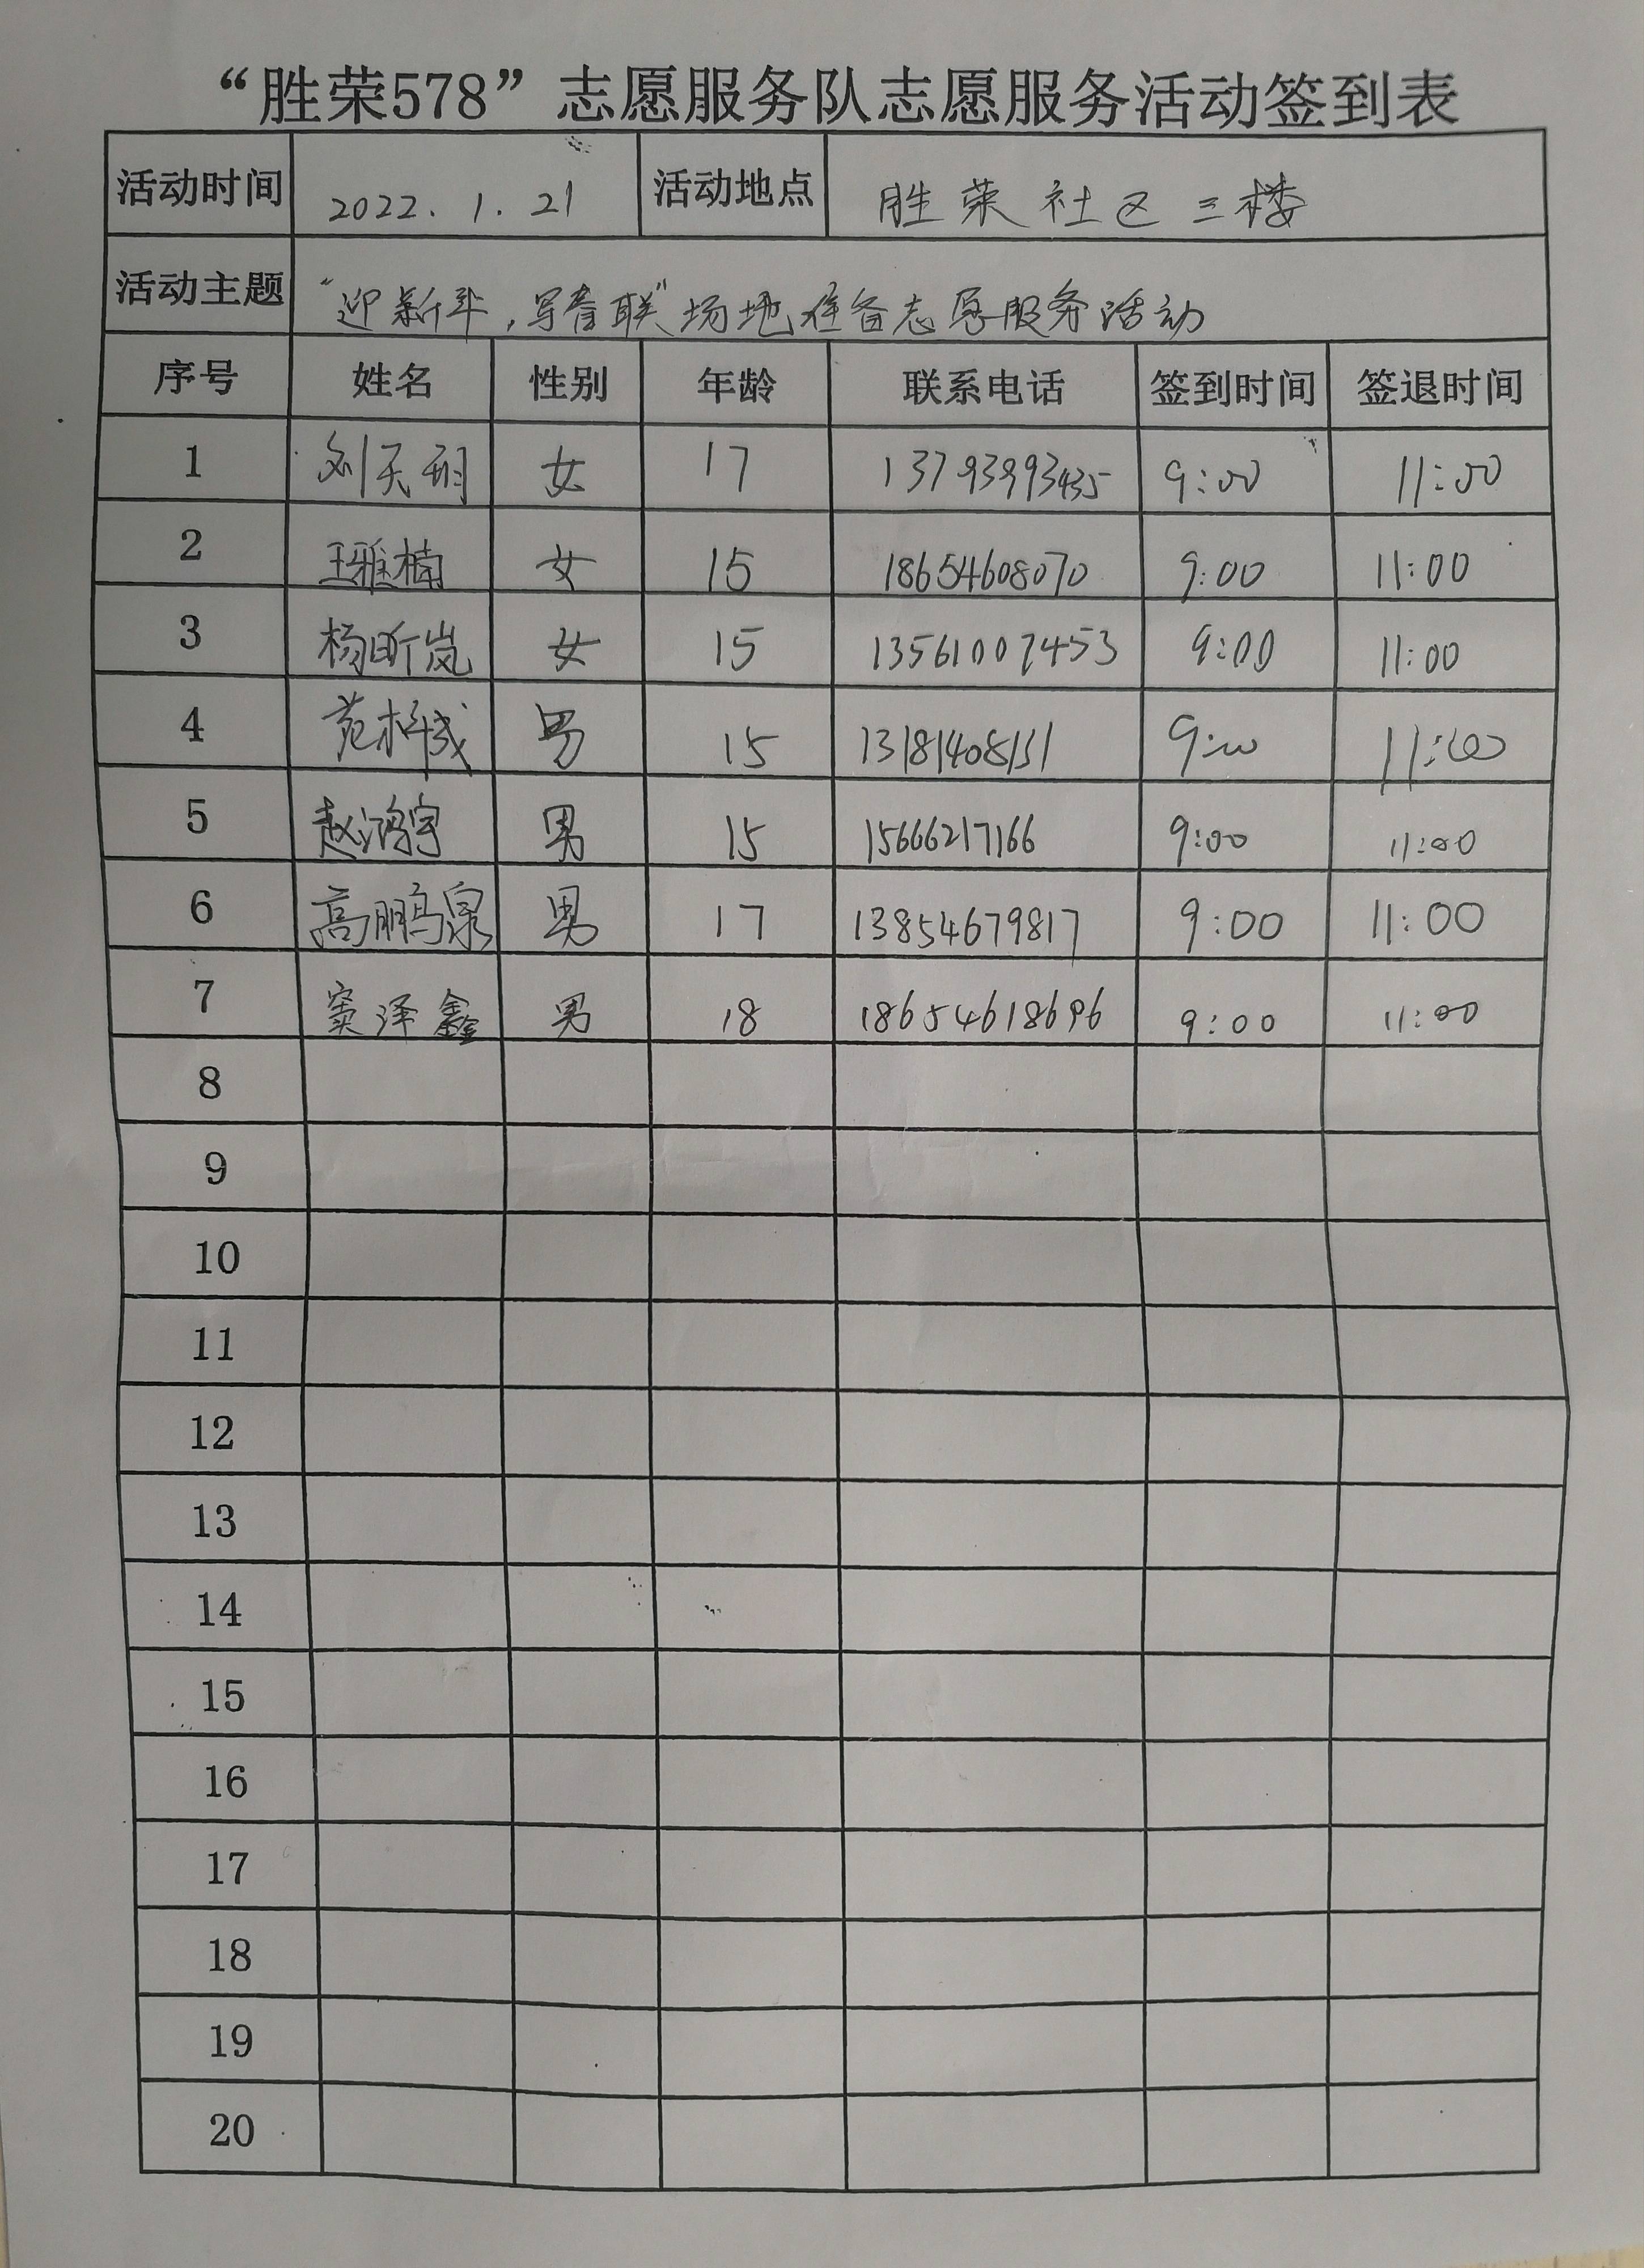 “胜荣578”志愿服务队志愿服务活动签到表
活动时间 2022.1.21 活动地点 胜荣社区三楼
活动主题 “迎新年，写春联”场地准备志愿服务活动
序号 姓名 性别 年龄 联系电话 签到时间 签退时间
1 刘天玥 女 17 13793993435 9:00 11:00
2 王雅楠 女 15 18654608070 9:00 11:00
3 杨昕岚 女 15 13561007453 9:00 11:00
4 男 15 13181408151 9:00 11:00
5 赵鸿宇 男 15 15666217166 9:00 11:00
6 高鹏泉 男 17 13854679817 9:00 11:00
7 窦泽鑫 男 18 18654618696 9:00 11:00
8
9
10
11
12
13
14
15
16
17
18
19
20